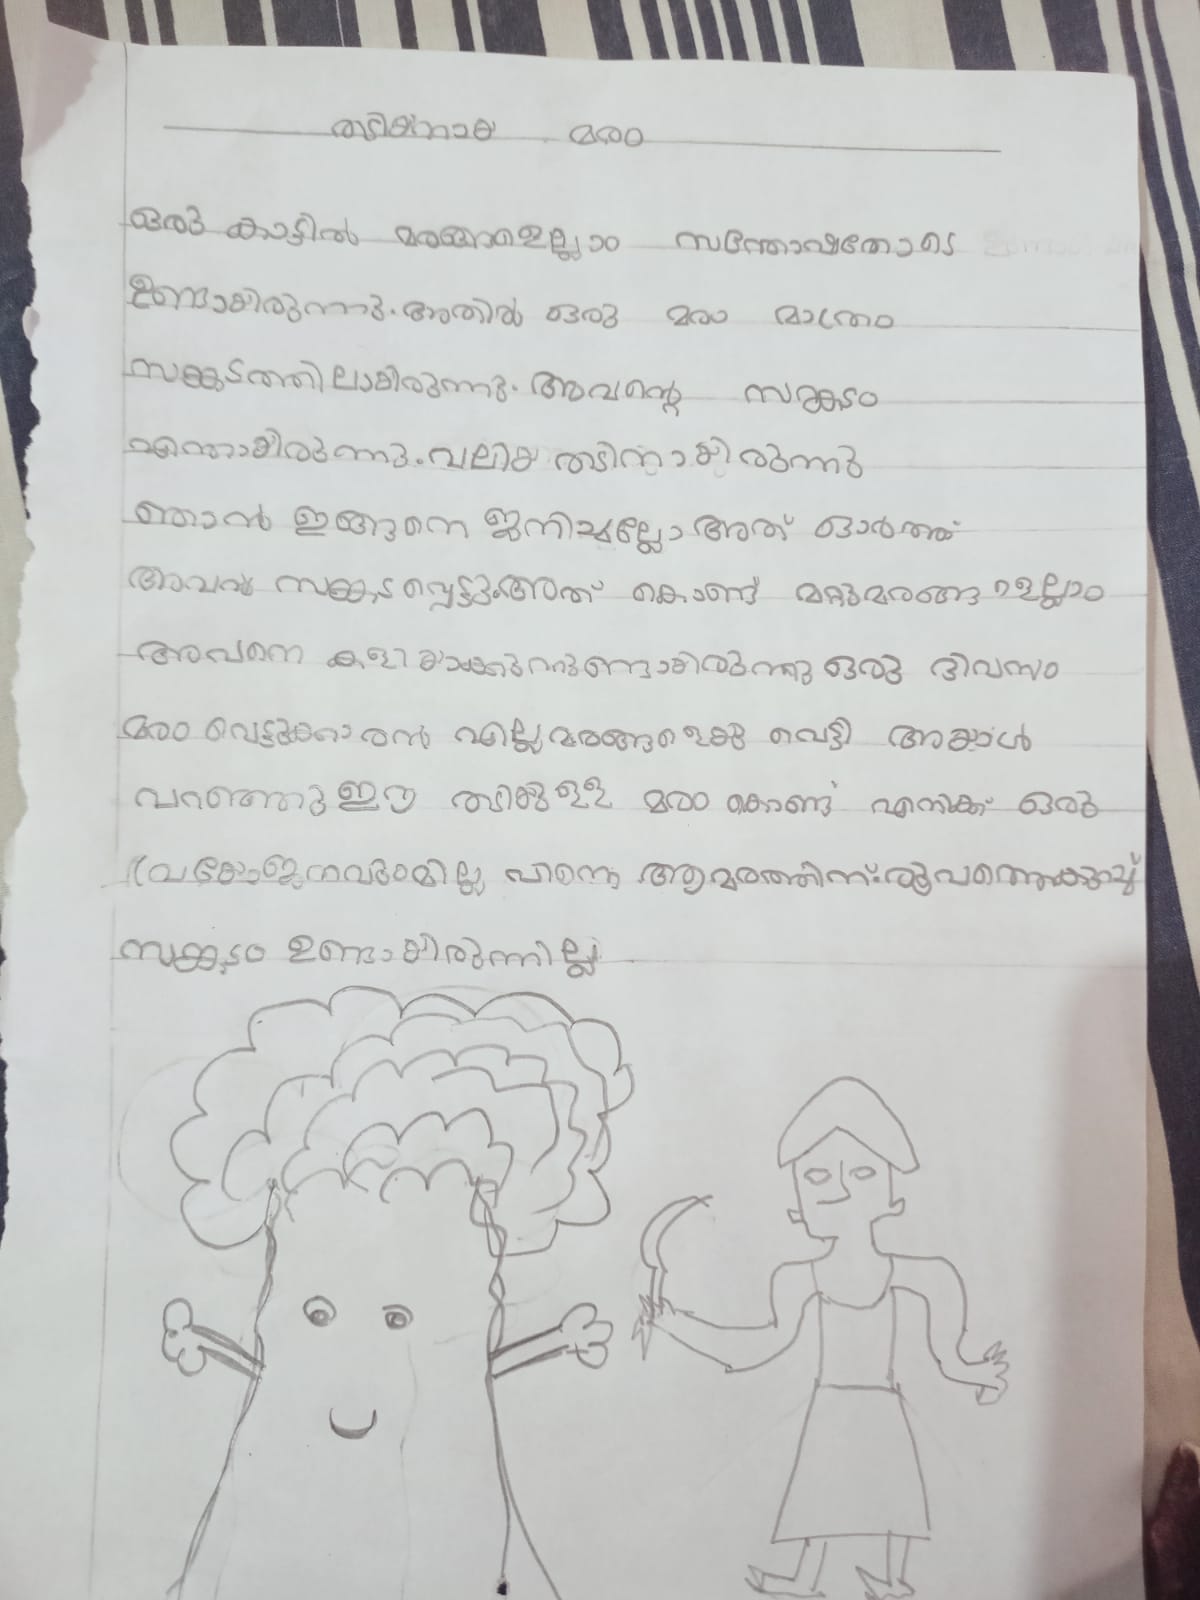 തടിയനായ മരം
ഒരു കാട്ടിൽ മരങ്ങളെല്ലാം സന്തോഷത്തോടെ
ഉണ്ടായിരുന്നു. അതിൽ ഒരു മരം മാത്രം
സങ്കടത്തിലായിരുന്നു. അവൻ്റെ സങ്കടം
എന്തായിരുന്നു. വലിയ തടിനായിരുന്നു
ഞാൻ ഇങ്ങനെ ജനിച്ചല്ലോ അത് ഓർത്ത്
അവൻ സങ്കടപ്പെട്ടു. അത് കൊണ്ട് മറ്റുമരങ്ങളെല്ലാം
അവനെ കളിയാക്കുന്നുണ്ടായിരുന്നു ഒരു ദിവസം
മരം വെട്ടുക്കാരൻ എല്ല മരങ്ങളെക്കു വെട്ടി അയാൾ
പറഞ്ഞു ഈ തടിക്കുള്ള മരം കൊണ്ട് എനിക്ക് ഒരു
പ്രയോജനവുംമില്ല പിന്നെ ആമരത്തിന് രൂപത്തെകുറച്ച്
സങ്കടം ഉണ്ടായിരുന്നില്ല